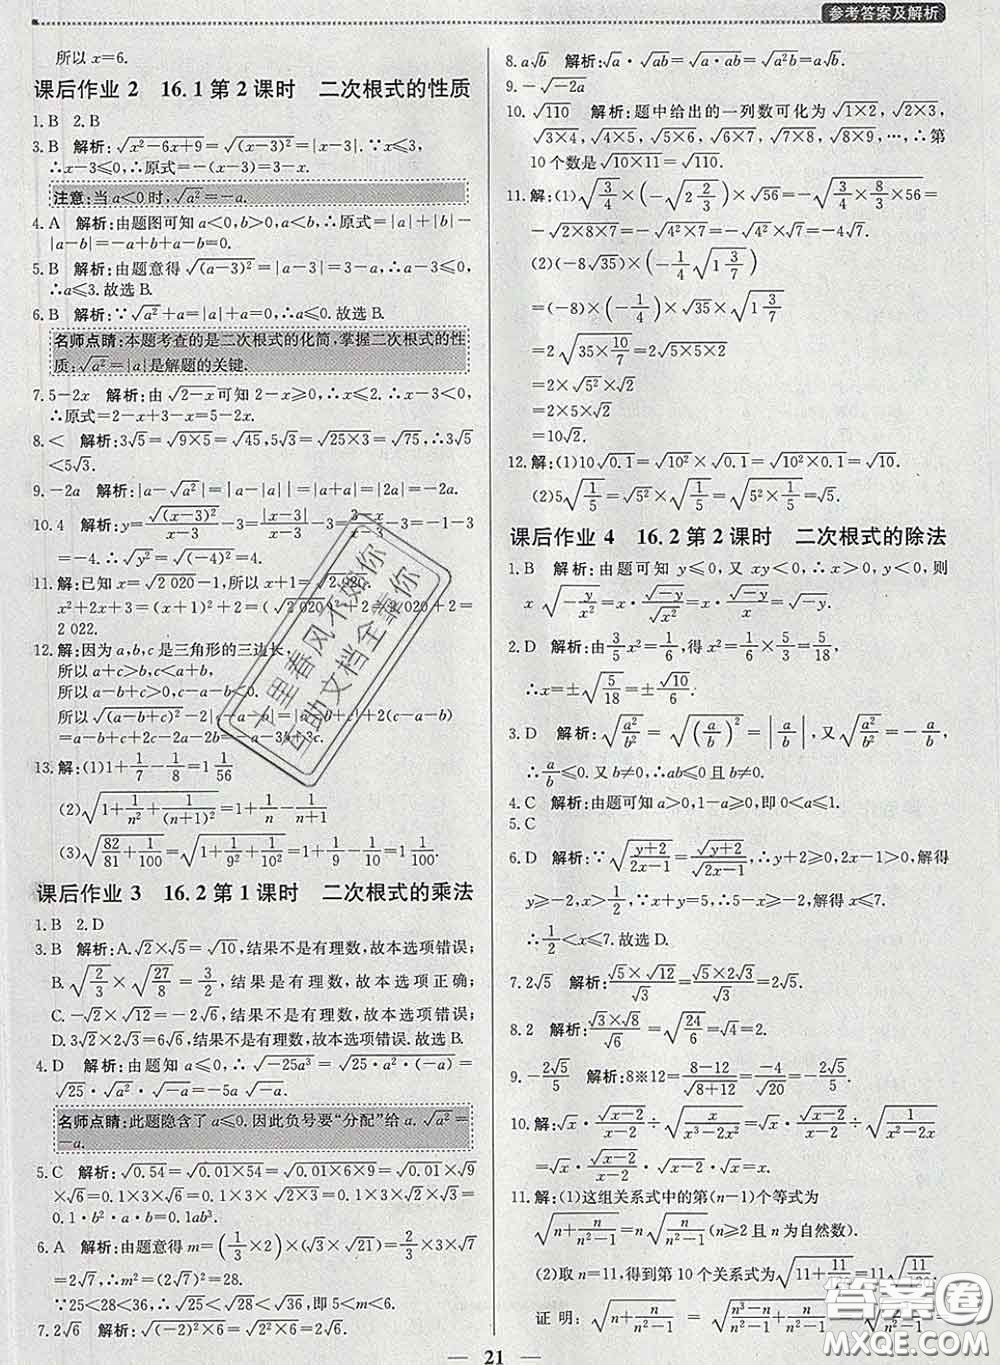 参考答案及解析
所以 x=6.
课后作业 2 16.1 第 2 课时 二次根式的性质
1. B 2. B
3. B 解析:√(x²-6x+9)=√((x-3)²)=|x-3|.∵x≤3,
∴x-3≤0,∴原式=-(x-3)=3-x.
注意:当 a≤0 时,√(a²)=-a.
4. A 解析:由题图可知 a<0,b>0,a<b,∴原式=|a|+|b|-
|a-b|=-a+b+a-b=0.
5. B 解析:由题意得√((a-3)²)=|a-3|=3-a,∴a-3≤0,
∴a≤3.故选 B.
6. B 解析:∵√(a²)+a=|a|+a=0,∴a≤0.故选 C.
名师点睛:本题考查的是二次根式的化简,掌握二次根式的性
质:√(a²)=|a|是解题的关键.
7. 5-2x 解析:由√(2-x)可知 2-x≥0,∴x≤2.∴x-3<0,
∴原式=2-x+3-x=5-2x.
8. < 解析:3√5=√(9×5)=√45,5√3=√(25×3)=√75,∴3√5
<5√3.
9. -2a 解析:|a-√(a²)|=|a-|a||=|a+a|=|2a|=-2a.
10. 4 解析:y=√((x-3)²)/(x-3)-3=|x-3|/(x-3)-3=-1-3
=-4.∴√(y²)=√((-4)²)=4.
11. 解:已知 x=√(2 020)-1,所以 x+1=√(2 020).
x²+2x+3=(x+1)²+2=(√(2 020))²+2=2 020+2=
2 022.
12. 解:因为 a,b,c 是三角形的三边长,
所以 a+c>b,b+c>a,
所以 a-b+c>0,c-a-b<0,
所以√((a-b+c)²)-2|c-a-b|=|a-b+c|+2(c-a-b)
=a-b+c+2c-2a-2b=-a-3b+3c.
13. 解:(1)1+1/7-1/8=1 1/56
(2)√(1+1/n²+1/(n+1)²)=1+1/n-1/(n+1)
(3)√(82/81+1/100)=√(1+1/9²+1/10²)=1+1/9-1/10=1 1/90
课后作业 3 16.2 第 1 课时 二次根式的乘法
1. B 2. D
3. B 解析:A.√2×√5=√10,结果不是有理数,故本选项错误;
B.√(2/3)×√(27/8)=3/2,结果是有理数,故本选项正确;
C.-√2×√12=-2√6,结果不是有理数,故本选项错误;
D.3√2×2√3=6√6,结果不是有理数,故本选项错误.故选 B.
4. D 解析:由题知 a≤0,∴√(-25a³)=√(25·a²·(-a))=
√25·√(a²)·√(-a)=-5a√(-a)
名师点睛:此题隐含了 a≤0.因此负号要“分配”给 a.√(a²)=
-a.
5. C 解析:√0.54=√(0.01×54)=√(0.01×6×9)=√0.01×√9
×√6=0.1×3×√6=0.1×3×√(2×3)=0.1×3×√2×√3=
0.1·b²·a·b=0.1ab³.
6. A 解析:由题意得 m=(1/3×2)×(√3×√21)=2/3×3×√7
=2√7,∴m²=(2√7)²=28.
∵25<28<36,∴√25<√28<√36,即 5<m<6.
7. 2√6 解析:√((-2)²×6)=√(2²×6)=2√6.
8. a√b 解析:√a·√(ab)=√(a·ab)=a√b.
9. -√(-2a)
10. √110 解析:题中给出的一列数可化为√(1×2),√(2×3),
√(3×4),√(4×5),√(5×6),√(6×7),√(7×8),√(8×9),…,∴第
10 个数是√(10×11)=√110.
11. 解:(1)√(3/4)×(-√(2 2/3))×√56=-√(3/4×8/3×56)=
-√(2×8×7)=-√(4²×7)=-√(4²)×√7=-4√7.
(2)(-8√35)×(-1/4√(1 3/7))
=(-8)×(-1/4)×√35×√(1 3/7)
=2√(35×10/7)=2√(5×5×2)
=2×√(5²)×√2
=2×5×√2
=10√2.
12. 解:(1)10√0.1=√(10²)×√0.1=√(10²×0.1)=√10.
(2)5√(1/5)=√(5²)×√(1/5)=√(5²×1/5)=√5.
课后作业 4 16.2 第 2 课时 二次根式的除法
1. B 解析:由题可知 y≤0,又 xy<0,∴x>0,y<0,则
x√(-y/x²)=x·√(-y)/√(x²)=x·√(-y)/x=√(-y).
2. D 解析:由 3/5 x²=1/6,得 x²=1/6×5/3=5/18,
∴x=±√(5/18)=±√10/6.
3. D 解析:√(a²/b²)=√((a/b)²)=|a/b|,又√(a²/b²)=-a/b,
∴a/b≤0.又 b≠0,∴ab≤0 且 b≠0.
4. C 解析:由题可知 a>0,1-a≥0,即 0<a≤1.
5. C
6. D 解析:∵√((y+2)/(2x-1))=√(y+2)/√(2x-1),∴y+2≥0,2x-1>0,解得
y≥-2,x>1/2.∵x+y=5,∴y=5-x≥-2,解得 x≤7.
∴1/2<x≤7.故选 D.
7. 2√5 解析:√5×√12/√3=√5×2√3/√3=2√5.
8. 2 解析:√3×√8/√6=√(24/6)=√4=2.
9. -2√5/5 解析:8※12=(8-12)/√(8+12)=-4/√20=-2√5/5.
10. 解:√x·√(x-2)/(x-2)÷
11. 解:(1)这组关系式中的第(n-1)个等式为
√(n+n/(n²-1))=n√(n/(n²-1))(n≥2 且 n 为自然数).
(2)取 n=11,得到第 10 个关系式为√(11+11/120)=11√(11/120).
证明:√(n+n/(n²-1))=
千里春风不如你
互助文档全靠你
答案圈
MXQE.COM
21